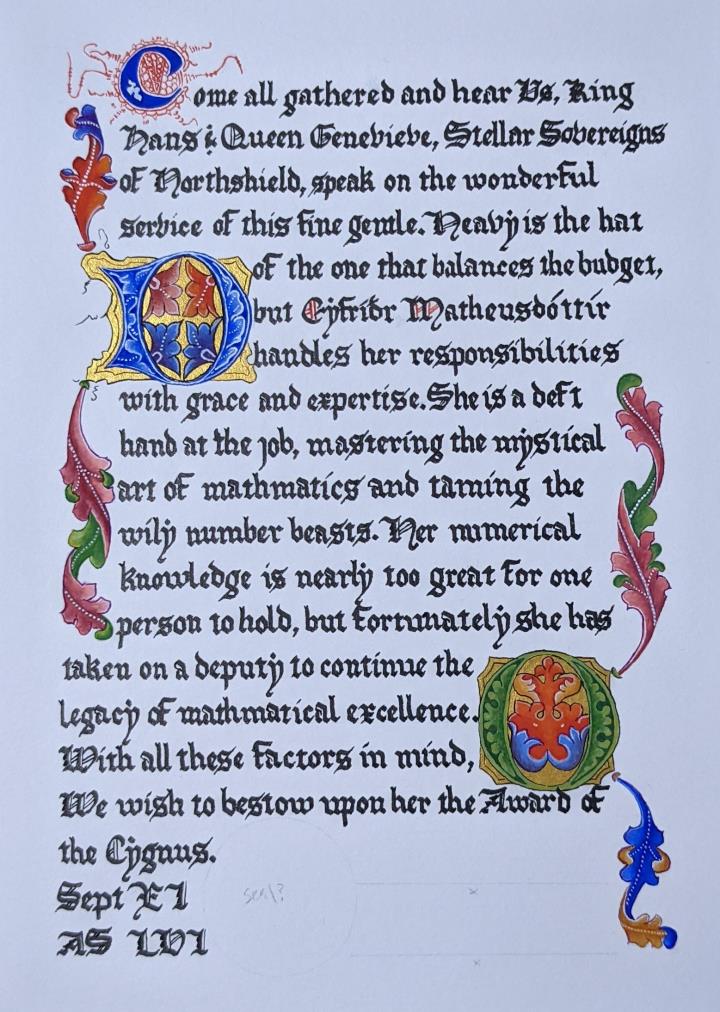 Come all gathered and hear Us, King
Hans & Queen Genevieve, Stellar Sovereigns
of Northshield, speak on the wonderful
service of this fine gentle. Heavy is the hat
of the one that balances the budget,
but Eyfriðr Matheusdóttir
handles her responsibilities
with grace and expertise. She is a deft
hand at the job, mastering the mystical
art of mathmatics and taming the
wily number beasts. Her numerical
knowledge is nearly too great for one
person to hold, but fortunately she has
taken on a deputy to continue the
legacy of mathmatical excellence.
With all these factors in mind,
We wish to bestow upon her the Award of
the Cygnus.
Sept XI
seal?
x
AS LVI
x